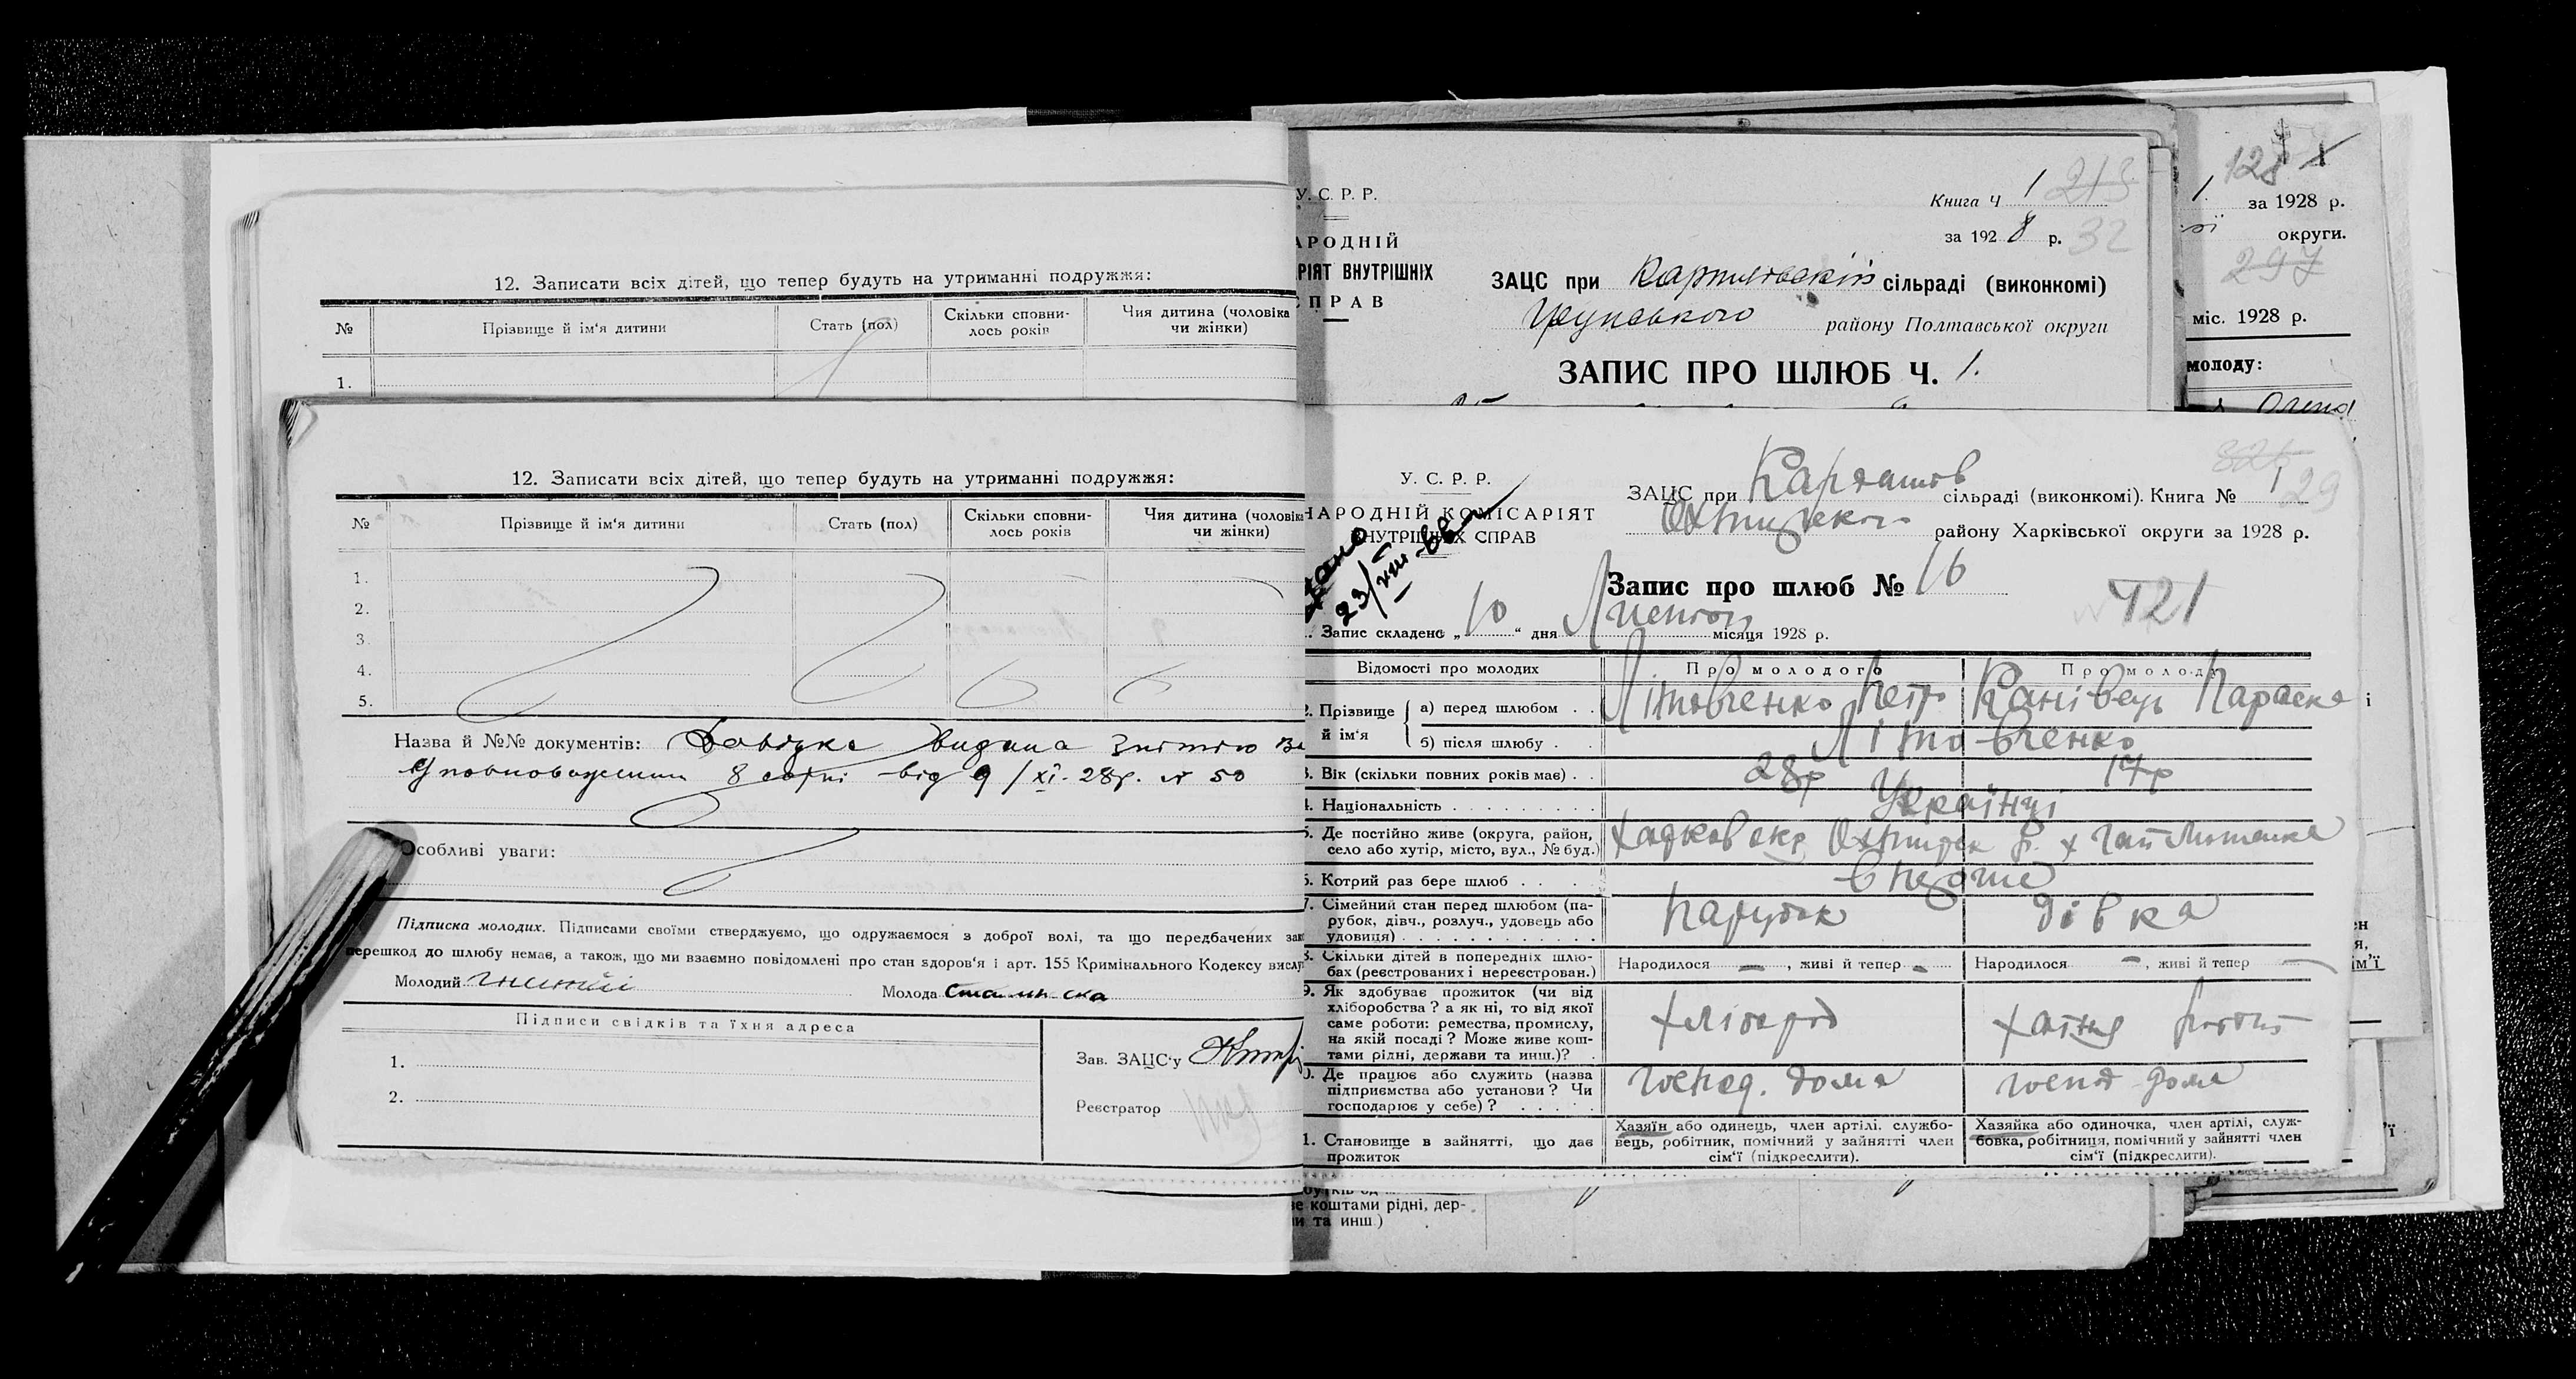 12. Записати всіх дітей, що тепер будуть на утриманні подружжя:
№ Прізвище й ім'я дитини Стать (пол) Скільки сповни-лось років Чия дитина (чоловіка чи жінки)
1.
12. Записати всіх дітей, що тепер будуть на утриманні подружжя:
№ Прізвище й ім'я дитини Стать (пол) Скільки сповни-лось років Чия дитина (чоловіка чи жінки)
1.
2.
3.
4.
5.
Назва й №№ документів: Довідка видана
8 сотні від 9/XI-28р. № 50
Особливі уваги:
Підписка молодих. Підписами своїми стверджуємо, що одружаємося з доброї волі, та що передбачених зак
перешкод до шлюбу немає, а також, що ми взаємно повідомлені про стан здоров'я і арт. 155 Кримінального Кодексу вислу
Молодий Молода
Підписи свідків та їхня адреса
1.
2.
Зав. ЗАЦС'у
Реєстратор
У. С. Р. Р.
АРОДНІЙ
РІЯТ ВНУТРІШНІХ
ПРАВ
Книга Ч 1 213
за 1928 р. 32
ЗАЦС при сільраді (виконкомі)
району Полтавської округи
ЗАПИС ПРО ШЛЮБ Ч. 1.
128
1. за 1928 р.
округи.
297
міс. 1928 р.
молоду:
Олена
У. С. Р. Р.
НАРОДНІЙ КОМІСАРІЯТ
ВНУТРІШНІХ СПРАВ
23/XIII-
ЗАЦС при Кардашов сільраді (виконкомі). Книга № 1 29
Охтирського району Харківської округи за 1928 р.
Запис про шлюб № 16
421
1. Запис складено „10" дня місяця 1928 р.
Відомості про молодих Про молодого Про молоду
2. Прізвище й ім'я а) перед шлюбом . . Літовченко Петро Канівець Параска
б) після шлюбу . Літовченко
3. Вік (скільки повних років має) . . 28р 17р
4. Національність . . . . . . . . . Українці
5. Де постійно живе (округа, район, село або хутір, місто, вул., № буд.) Харков окр Охтирск р. х Гай
6. Котрий раз бере шлюб . . . вперше
7. Сімейний стан перед шлюбом (па-рубок, дівч., розлуч., удовець або удовиця) . . . . . . . . . . . . Парубок дівка
8. Скільки дітей в попередніх шлю-бах (реєстрованих і нереєстрован.) Народилося — , живі й тепер - Народилося - , живі й тепер —
9. Як здобуває прожиток (чи від хліборобства? а як ні, то від якої саме роботи: ремества, промислу, на якій посаді? Може живе кош-тами рідні, держави та инш.)? . хлібороб хатня робота
10. Де працює або служить (назва підприємства або установи? Чи господарює у себе)? . . . . . госпад. дома госпд дома
11. Становище в зайнятті, що дає прожиток Хазяїн або одинець, член артілі, службо-вець, робітник, помічний у зайнятті член сім'ї (підкреслити). Хазяйка або одиночка, член артілі, служ-бовка, робітниця, помічний у зайнятті член сім'ї (підкреслити).
е коштами рідні, дер-
и та инш.)